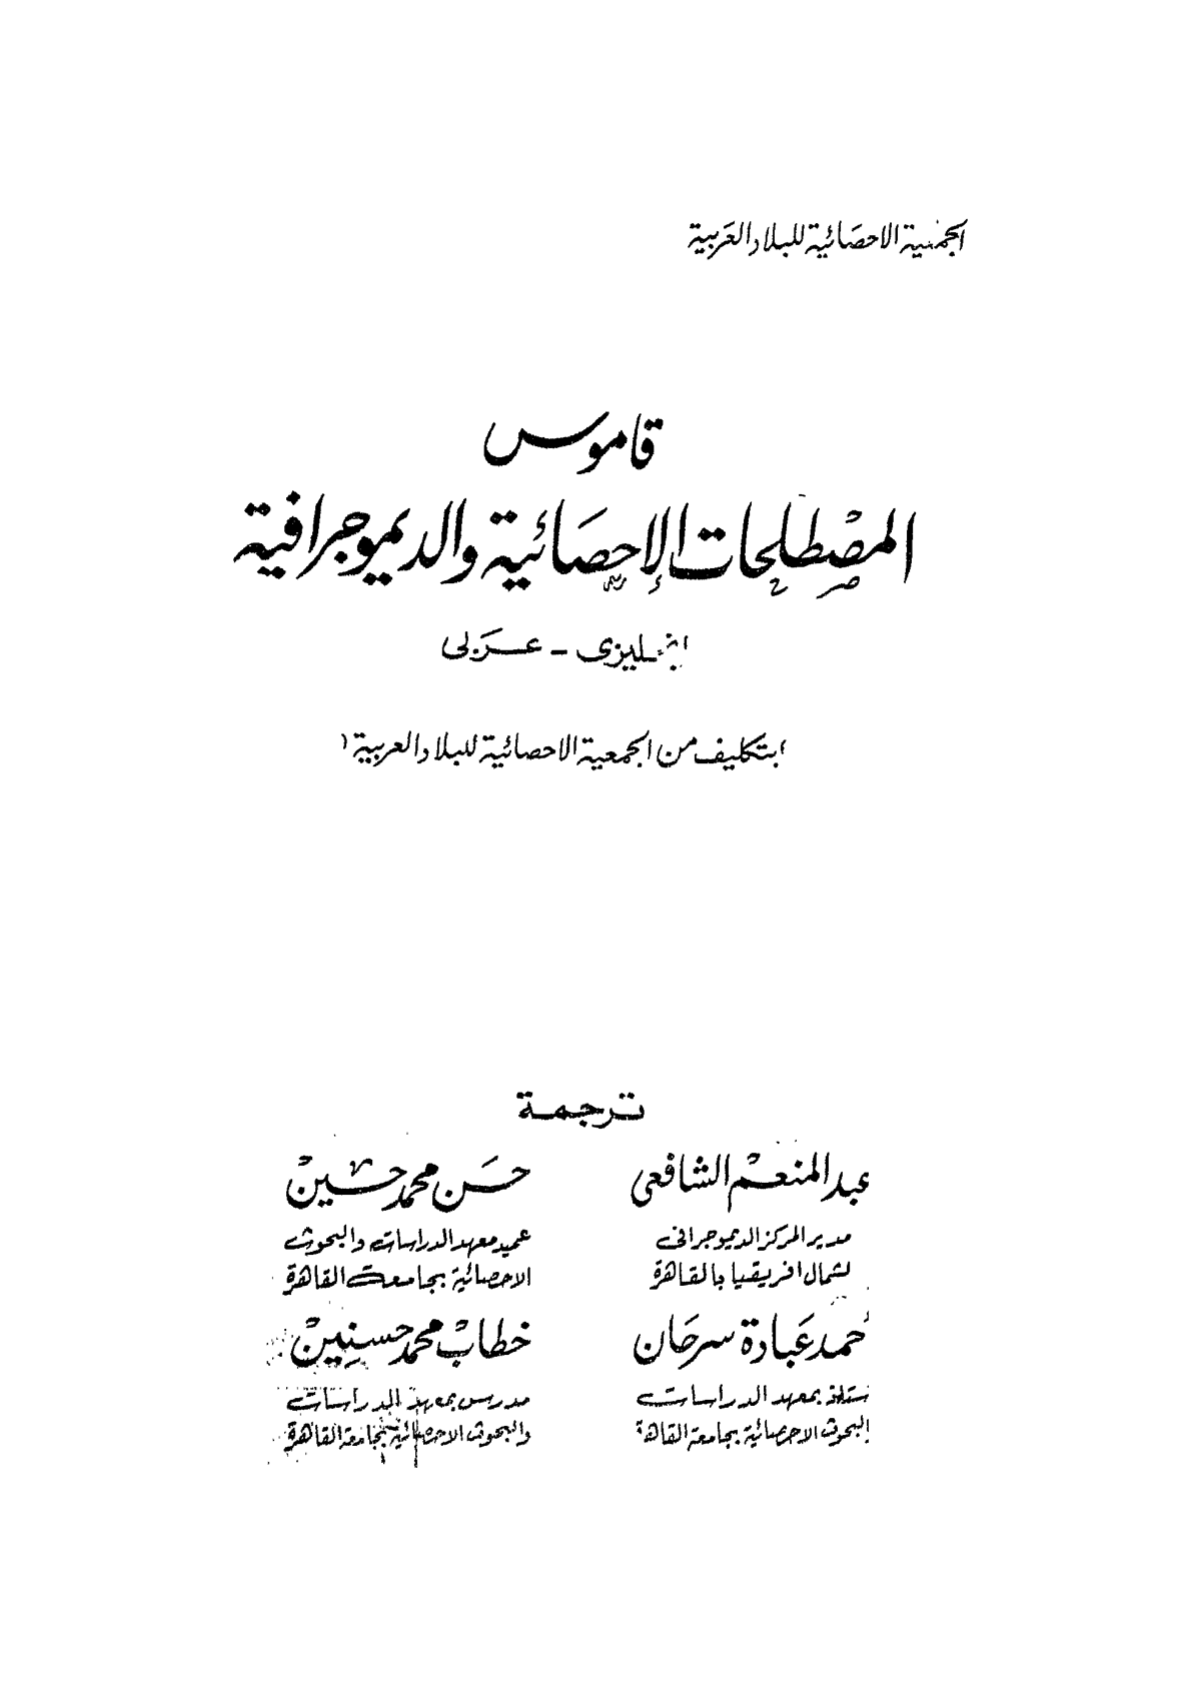 الجمعية الاحصائية للبلاد العربية
قاموس
المصطلحات الإحصائية والديموجرافية
انجليزى - عربى
ابتكليف من الجمعية الاحصائية للبلاد العربية (
ترجمة
عبد المنعم الشافعى
مدير المركز الديموجرافى
لشمال افريقيا بالقاهرة
حسن محمد حسين
عميد معهد الدراسات والبحوث
الاحصائية بجامعة القاهرة
أحمد عبادة سرحان
ستاذ بمعهد الدراسات
البحوث الاحصائية بجامعة القاهرة
خطاب محمد حسنين
مدرس بمعهد الدراسات
والبحوث الاحصائية بجامعة القاهرة